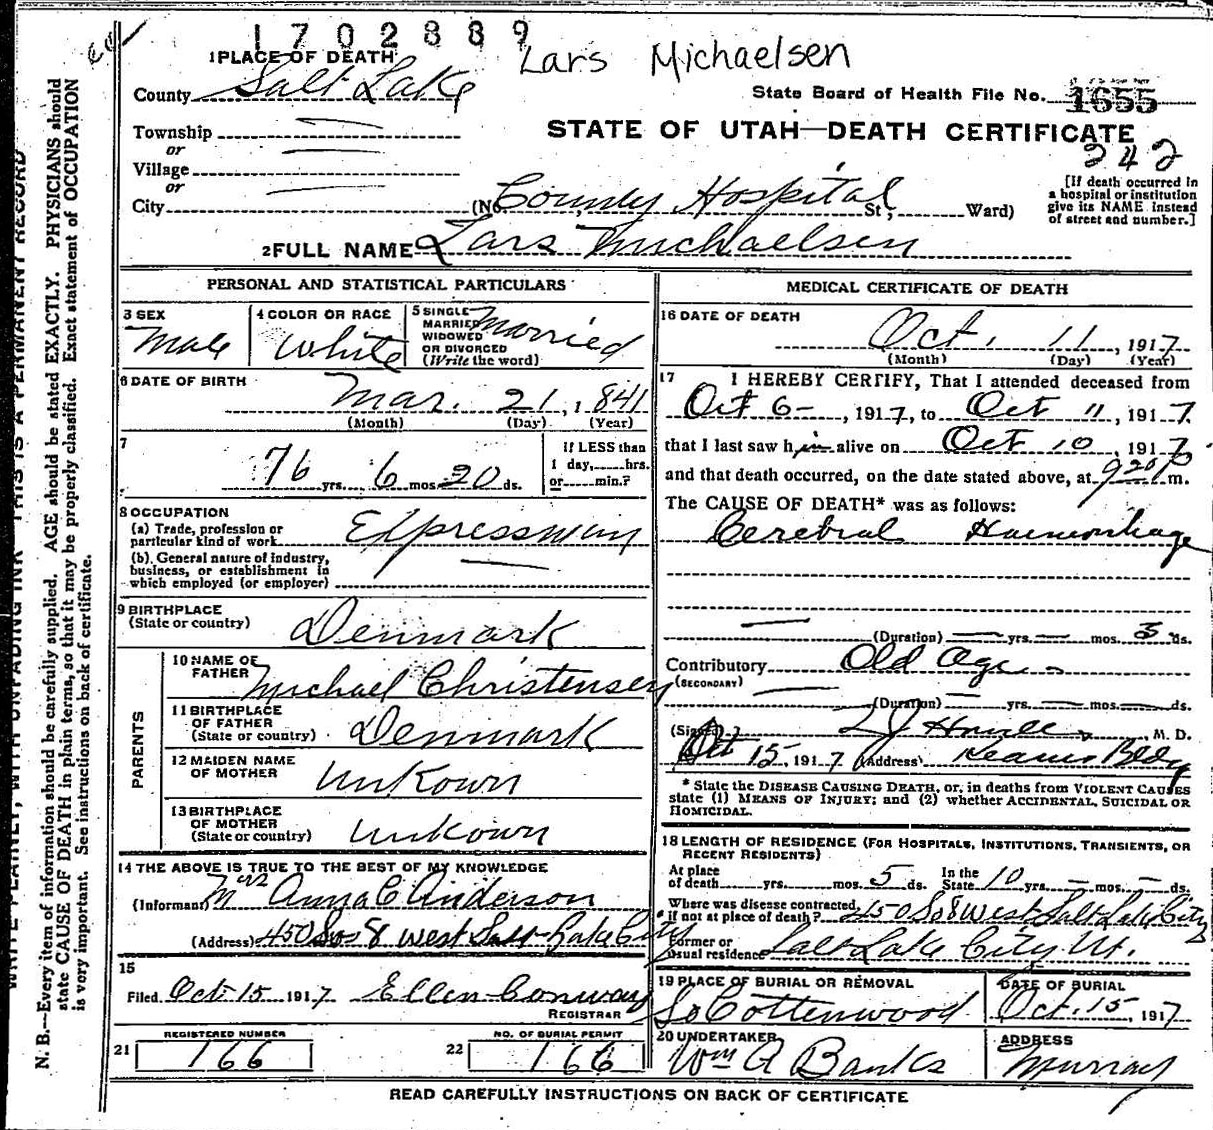 1702889
Lars Michaelsen
1 PLACE OF DEATH
County Salt Lake
State Board of Health File No. 1655
Township
or
STATE OF UTAH—DEATH CERTIFICATE
242
Village
or
City (No. County Hospital St; Ward)
[If death occurred in a hospital or institution give its NAME instead of street and number.]
2 FULL NAME Lars Michaelsen
PERSONAL AND STATISTICAL PARTICULARS
3 SEX Male
4 COLOR OR RACE White
5 SINGLE MARRIED WIDOWED OR DIVORCED (Write the word) Married
6 DATE OF BIRTH Mar. 21, 1841
(Month) (Day) (Year)
7 76 yrs. 6 mos. 20 ds.
If LESS than 1 day, hrs. or min.?
8 OCCUPATION
(a) Trade, profession or particular kind of work Expressman
(b) General nature of industry, business, or establishment in which employed (or employer)
9 BIRTHPLACE
(State or country) Denmark
PARENTS
10 NAME OF FATHER Michael Christensen
11 BIRTHPLACE OF FATHER (State or country) Denmark
12 MAIDEN NAME OF MOTHER Unkown
13 BIRTHPLACE OF MOTHER (State or country) Unkown
14 THE ABOVE IS TRUE TO THE BEST OF MY KNOWLEDGE
(Informant) Mrs Anna C Anderson
(Address) 450 So 8 West Salt Lake City
15
Filed Oct 15 1917 Ellen Conway
REGISTRAR
21 REGISTERED NUMBER 166
22 NO. OF BURIAL PERMIT 166
MEDICAL CERTIFICATE OF DEATH
16 DATE OF DEATH
Oct. 11, 1917
(Month) (Day) (Year)
17 I HEREBY CERTIFY, That I attended deceased from
Oct 6, 1917, to Oct 11, 1917
that I last saw him alive on Oct 10, 1917
and that death occurred, on the date stated above, at 9 20 P m.
The CAUSE OF DEATH* was as follows:
Cerebral Haemorrhage
(Duration) yrs. mos. 5 ds.
Contributory Old Age
(SECONDARY)
(Duration) yrs. mos. ds.
(Signed) , M. D.
Oct 15, 1917 (Address) Kearns Bldg
* State the DISEASE CAUSING DEATH, or, in deaths from VIOLENT CAUSES
state (1) MEANS OF INJURY; and (2) whether ACCIDENTAL, SUICIDAL OR
HOMICIDAL.
18 LENGTH OF RESIDENCE (FOR HOSPITALS, INSTITUTIONS, TRANSIENTS, OR
RECENT RESIDENTS)
At place of death yrs. mos. 5 ds. In the State 10 yrs. mos. ds.
Where was disease contracted, if not at place of death? 450 So 8 West Salt Lake City
Former or usual residence Salt Lake City Ut.
19 PLACE OF BURIAL OR REMOVAL So Cottenwood
DATE OF BURIAL Oct. 15, 1917
20 UNDERTAKER Wm A Banks
ADDRESS Murray
READ CAREFULLY INSTRUCTIONS ON BACK OF CERTIFICATE
WRITE PLAINLY, WITH UNFADING INK—THIS IS A PERMANENT RECORD
N. B.—Every item of information should be carefully supplied. AGE should be stated EXACTLY. PHYSICIANS should
state CAUSE OF DEATH in plain terms, so that it may be properly classified. Exact statement of OCCUPATION
is very important. See instructions on back of certificate.